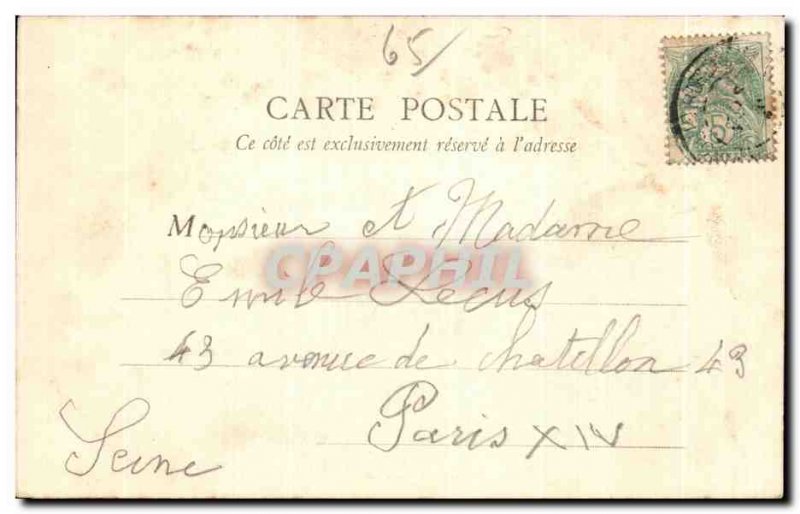 65
CARTE POSTALE
Ce côté est exclusivement réservé à l'adresse
5
Monsieur et Madame
CPAPHIL
Lecus
43 avenue de Chatillon 43
Paris XIV
Seine